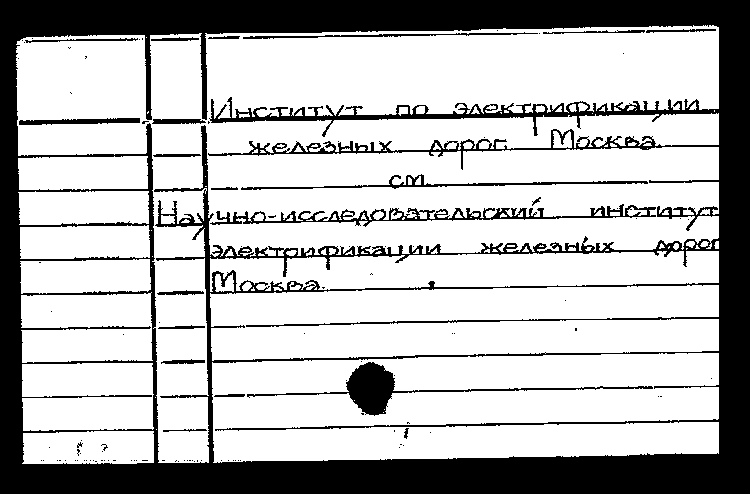 Институт по электрификации
железных дорог. Москва.
см.
Научно-исследовательский институт
электрификации железных дорог
Москва.